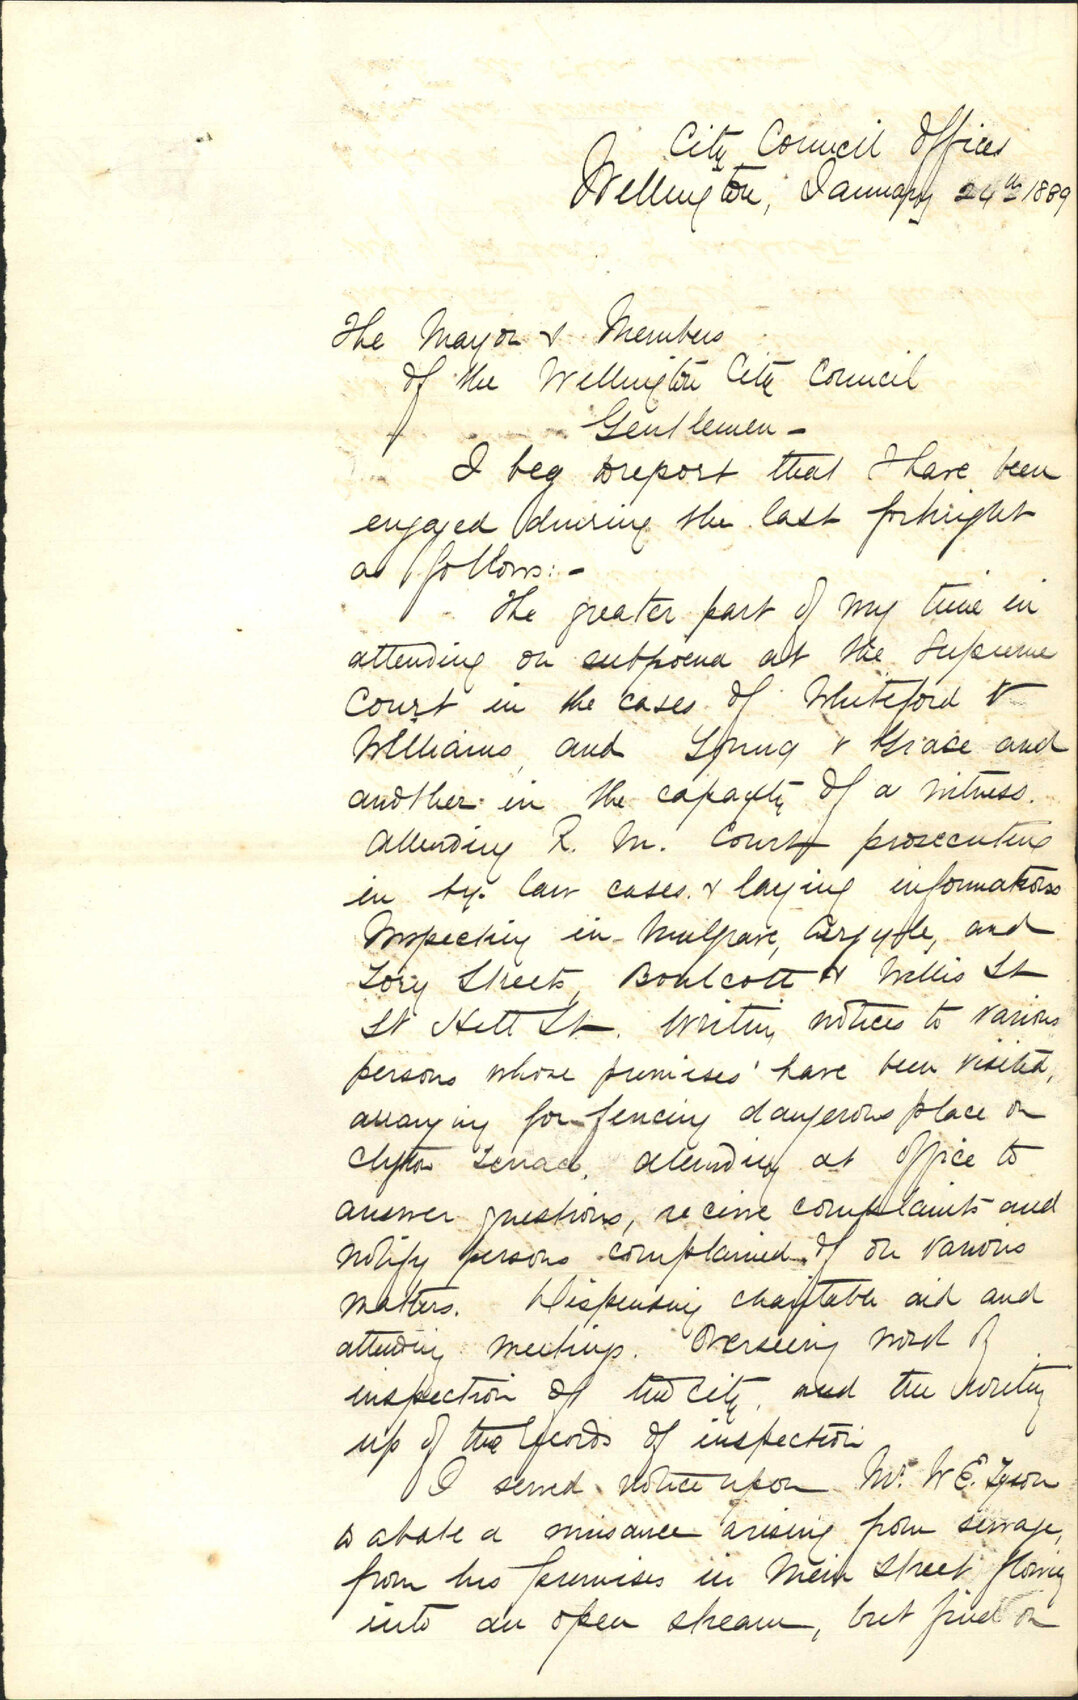 City Council Offices
Wellington, January 24th 1889
The Mayor & Members
of the Wellington City Council
Gentlemen -
I beg to report that I have been
engaged during the last fortnight
as follows: -
The greater part of my time in
attending on subpoena at the Supreme
Court in the cases of Whiteford v
Williams, and Young v Grace and
another in the capacity of a witness.
Attending R. M. Court prosecuting
in by-law cases & laying informations
Inspecting in Mulgrave, Argyle, and
Tory Streets, Boulcott & Willis St
St Hill St. Writing notices to various
persons whose premises have been visited,
arranging for fencing dangerous place on
Clifton Terrace, attending at office to
answer questions, receive complaints and
notify persons complained of on various
matters. Dispensing charitable aid and
attending meetings. Overseeing work of
inspection of the City, and the writing
up of the records of inspection
I served notice upon Mr. W E. Tyson
to abate a nuisance arising from sewage,
from his premises in Mein Street flowing
into an open stream, but find on